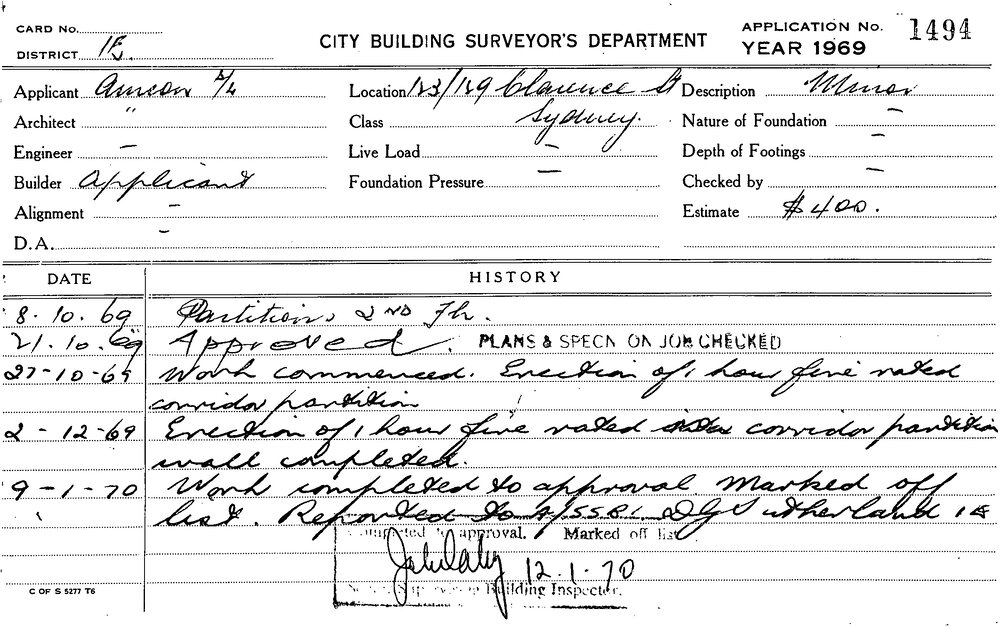 CARD No.
DISTRICT 1E.
CITY BUILDING SURVEYOR'S DEPARTMENT
APPLICATION No. 1494
YEAR 1969
Applicant
Location 183/189 Clarence St
Sydney.
Description Minor
Architect "
Class
Nature of Foundation –
Engineer –
Live Load –
Depth of Footings –
Builder Applicant
Foundation Pressure –
Checked by –
Alignment –
Estimate $400.
D.A. –
DATE HISTORY
8.10.69 Partitions 2ND Flr.
21.10.69 Approved. PLANS & SPECN ON JOB CHECKED
27-10-69 Work commenced. Erection of 1 hour fire rated
corridor partition
2-12-69 Erection of 1 hour fire rated corridor partition
wall completed.
9-1-70 Work completed to approval Marked off
list. Reported to A/SSBI. D G Sutherland 1E
Completed to approval. Marked off list
12.1.70
Senior Supervising Building Inspector.
C OF S 5277 T6